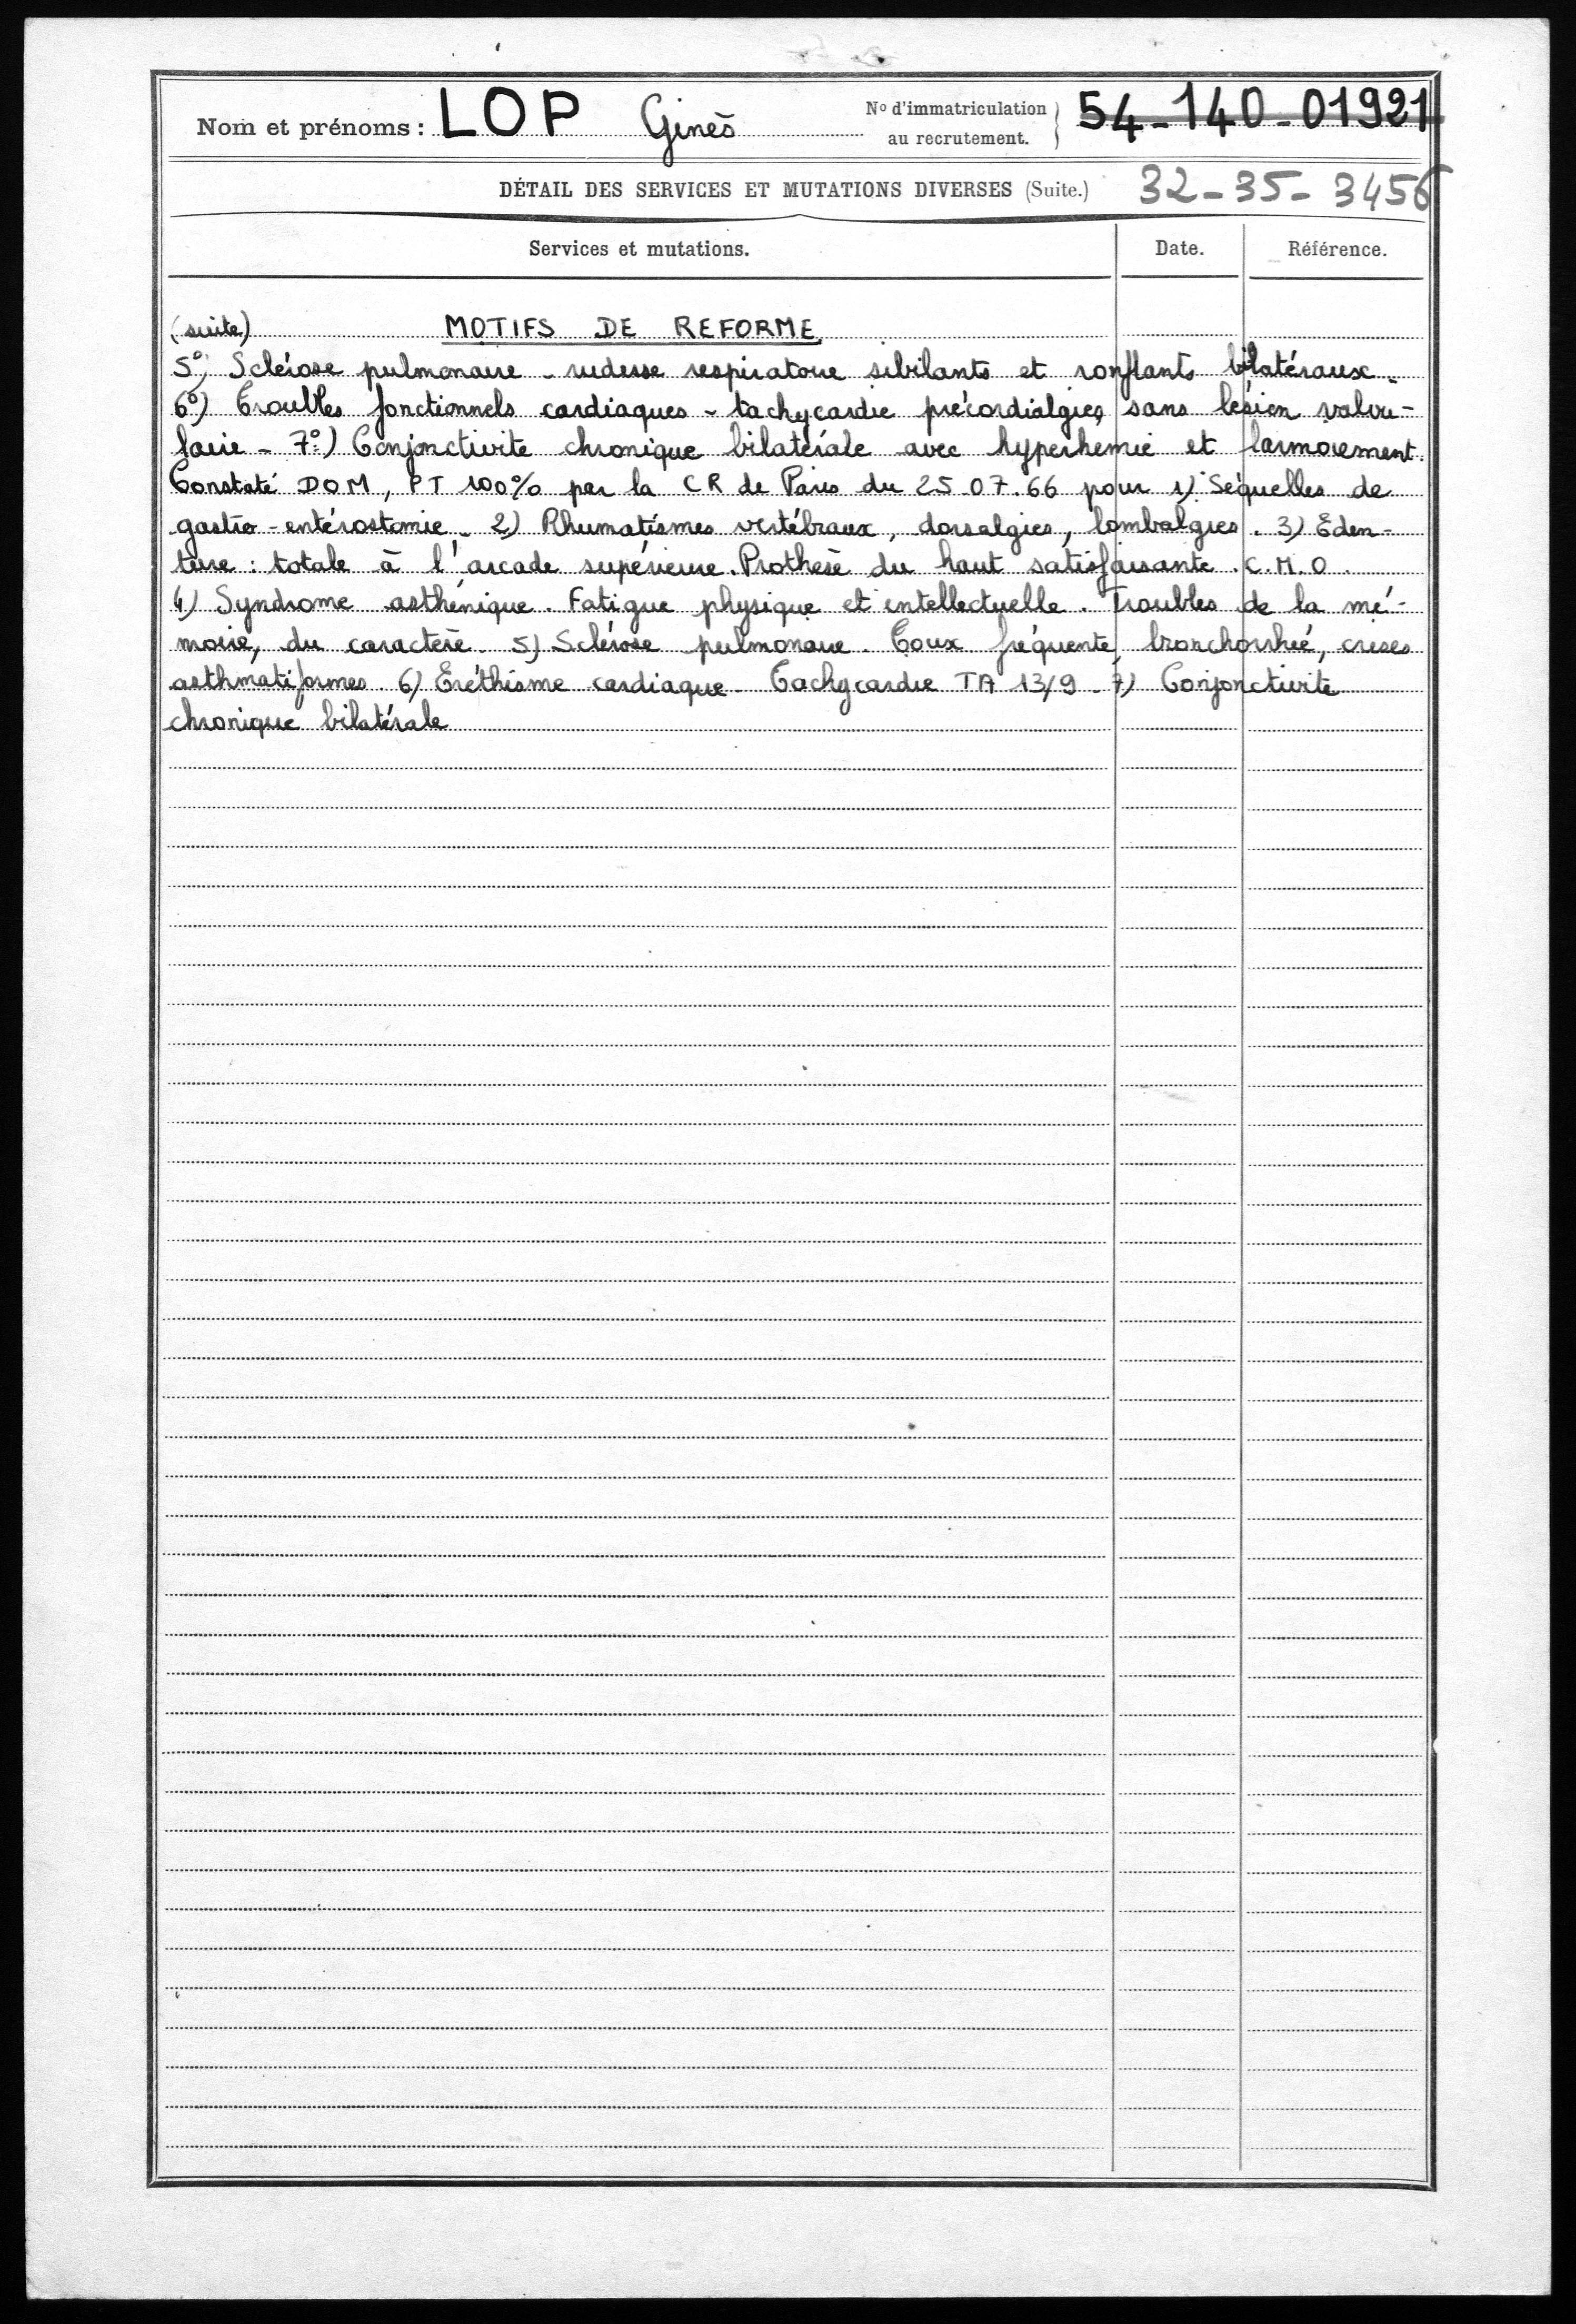 Nom et prénoms : LOP Ginès
N° d'immatriculation au recrutement. 54-140-01921
DÉTAIL DES SERVICES ET MUTATIONS DIVERSES (Suite.) 32-35-3456
Services et mutations. Date. Référence.
(suite) MOTIFS DE REFORME
5°) Sclérose pulmonaire - rudesse respiratoire sibilants et ronflants bilatéraux -
6°) Troubles fonctionnels cardiaques - tachycardie précordialgies sans lésion valvu-
laire - 7°) Conjonctivite chronique bilatérale avec hyperhemie et larmoiement.
Constaté DOM, PT 100% par la CR de Paris du 25.07.66 pour 1) Séquelles de
gastro-entérostomie - 2) Rhumatismes vertébraux, dorsalgies, lombalgies. 3) Eden-
ture : totale à l'arcade supérieure. Prothèse du haut satisfaisante. C.M.O.
4) Syndrome asthénique. Fatigue physique et intellectuelle. Troubles de la mé-
moire, du caractère. 5) Sclérose pulmonaire. Toux fréquente, bronchorrhée, crises
asthmatiformes. 6) Eréthisme cardiaque - Tachycardie TA 13/9 - 7) Conjonctivite
chronique bilatérale